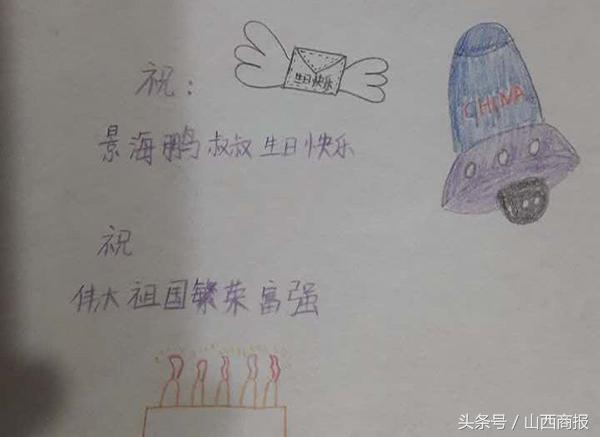 祝:
生日快乐
CHINA
景海鹏叔叔生日快乐
祝
伟大祖国繁荣富强
头条号/山西商报